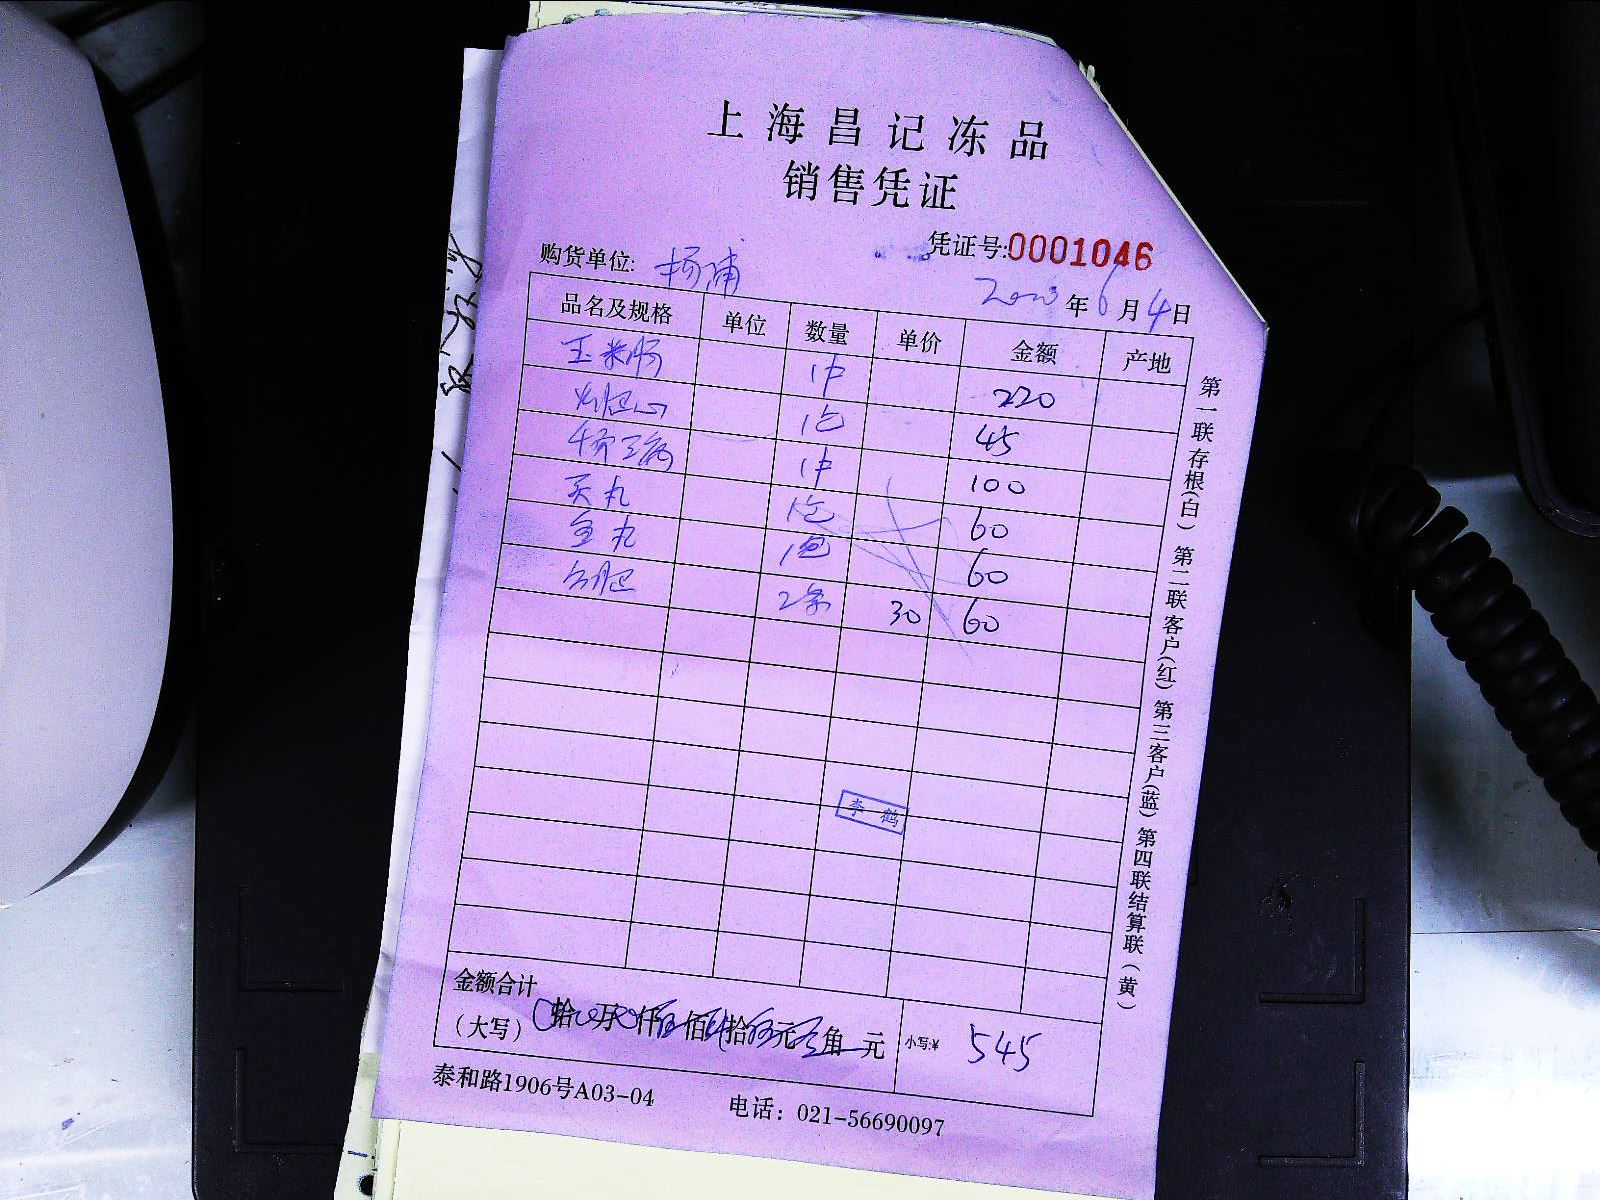 上海昌记冻品
销售凭证
凭证号:0001046
购货单位: 杨浦
2023年6月4日
品名及规格 单位 数量 单价 金额 产地
玉米肠 1件 220
1包 45
1件 100
贡丸 1包 60
鱼丸 1包 60
2条 30 60
李鹤
金额合计
(大写) 拾 万 仟 伍佰 肆拾 伍元 角 元 小写:¥ 545
泰和路1906号A03-04 电话: 021-56690097
第一联存根(白) 第二联客户(红) 第三客户(蓝) 第四联结算联(黄)